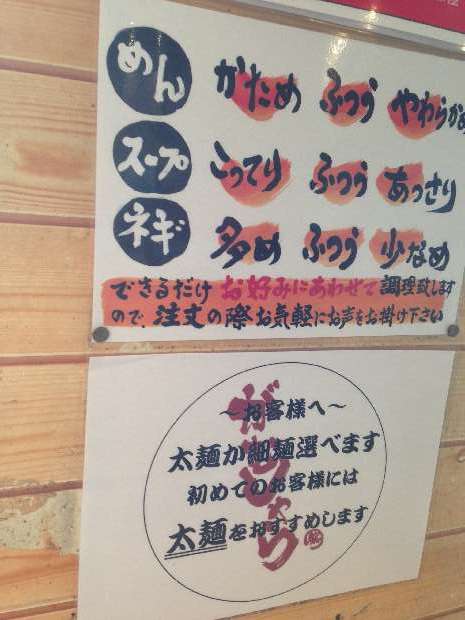 めん かため ふつう やわらかめ
スープ こってり ふつう あっさり
ネギ 多め ふつう 少なめ
できるだけお好みにあわせて調理致します
ので、注文の際お気軽にお声をお掛け下さい
～お客様へ～
太麺か細麺選べます
初めてのお客様には
太麺をおすすめします
がむしゃら